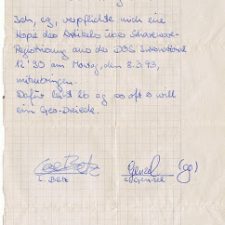 Ich, eg, verpflichte mich eine
Kopie des Artikels über Shareware-
Registrierung aus der DOS International
12'90 am Montag, den 8.3.93,
mitzubringen.
Dafür eg so oft o will
ein Geo-Dreieck.
(go)